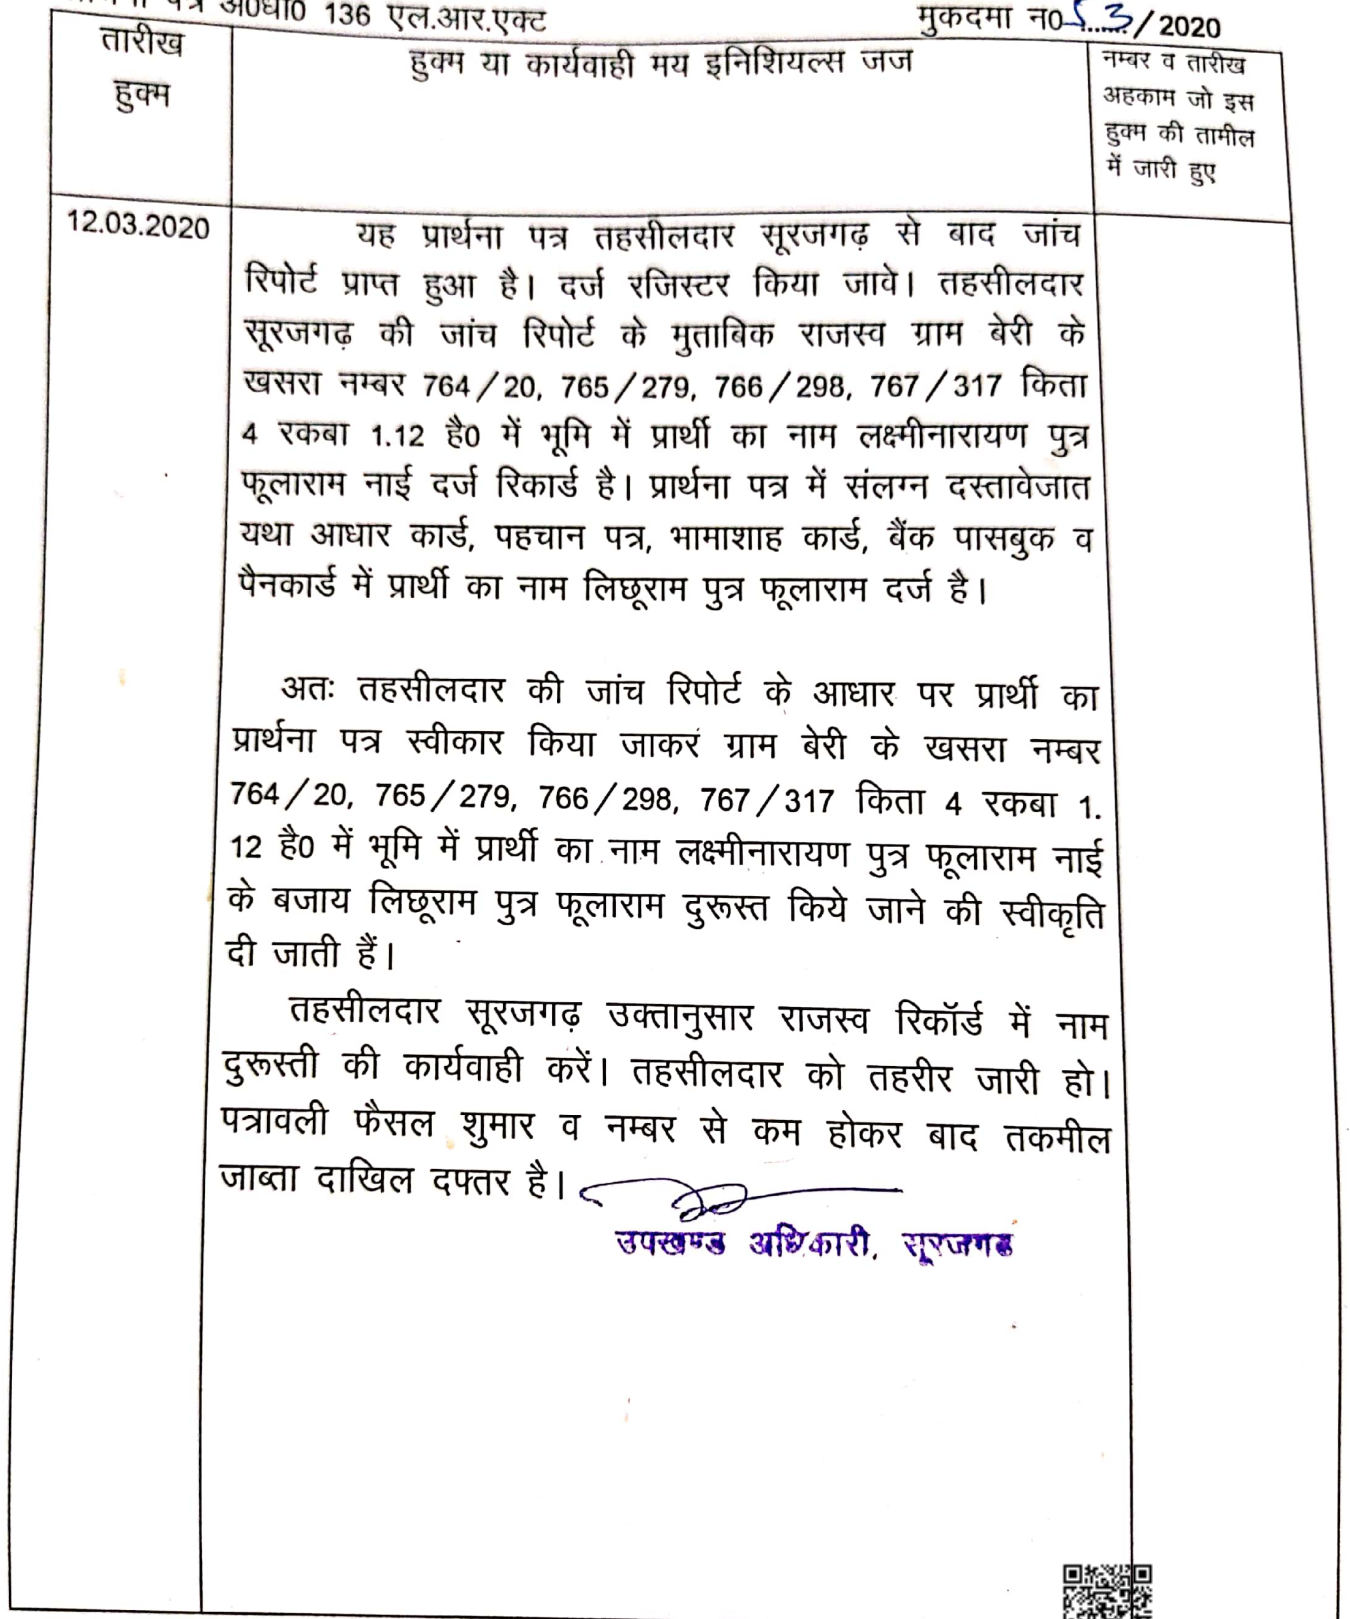 पत्र अ0धा0 136 एल.आर.एक्ट
मुकदमा न0 53/2020
तारीख
हुक्म
हुक्म या कार्यवाही मय इनिशियल्स जज
नम्बर व तारीख
अहकाम जो इस
हुक्म की तामील
में जारी हुए
12.03.2020
यह प्रार्थना पत्र तहसीलदार सूरजगढ़ से बाद जांच
रिपोर्ट प्राप्त हुआ है। दर्ज रजिस्टर किया जावे। तहसीलदार
सूरजगढ़ की जांच रिपोर्ट के मुताबिक राजस्व ग्राम बेरी के
खसरा नम्बर 764/20, 765/279, 766/298, 767/317 किता
4 रकबा 1.12 है0 में भूमि में प्रार्थी का नाम लक्ष्मीनारायण पुत्र
फूलाराम नाई दर्ज रिकार्ड है। प्रार्थना पत्र में संलग्न दस्तावेजात
यथा आधार कार्ड, पहचान पत्र, भामाशाह कार्ड, बैंक पासबुक व
पैनकार्ड में प्रार्थी का नाम लिछूराम पुत्र फूलाराम दर्ज है।
अतः तहसीलदार की जांच रिपोर्ट के आधार पर प्रार्थी का
प्रार्थना पत्र स्वीकार किया जाकर ग्राम बेरी के खसरा नम्बर
764/20, 765/279, 766/298, 767/317 किता 4 रकबा 1.
12 है0 में भूमि में प्रार्थी का नाम लक्ष्मीनारायण पुत्र फूलाराम नाई
के बजाय लिछूराम पुत्र फूलाराम दुरूस्त किये जाने की स्वीकृति
दी जाती हैं।
तहसीलदार सूरजगढ़ उक्तानुसार राजस्व रिकॉर्ड में नाम
दुरूस्ती की कार्यवाही करें। तहसीलदार को तहरीर जारी हो।
पत्रावली फैसल शुमार व नम्बर से कम होकर बाद तकमील
जाब्ता दाखिल दफ्तर है।
उपखण्ड अधिकारी, सूरजगढ